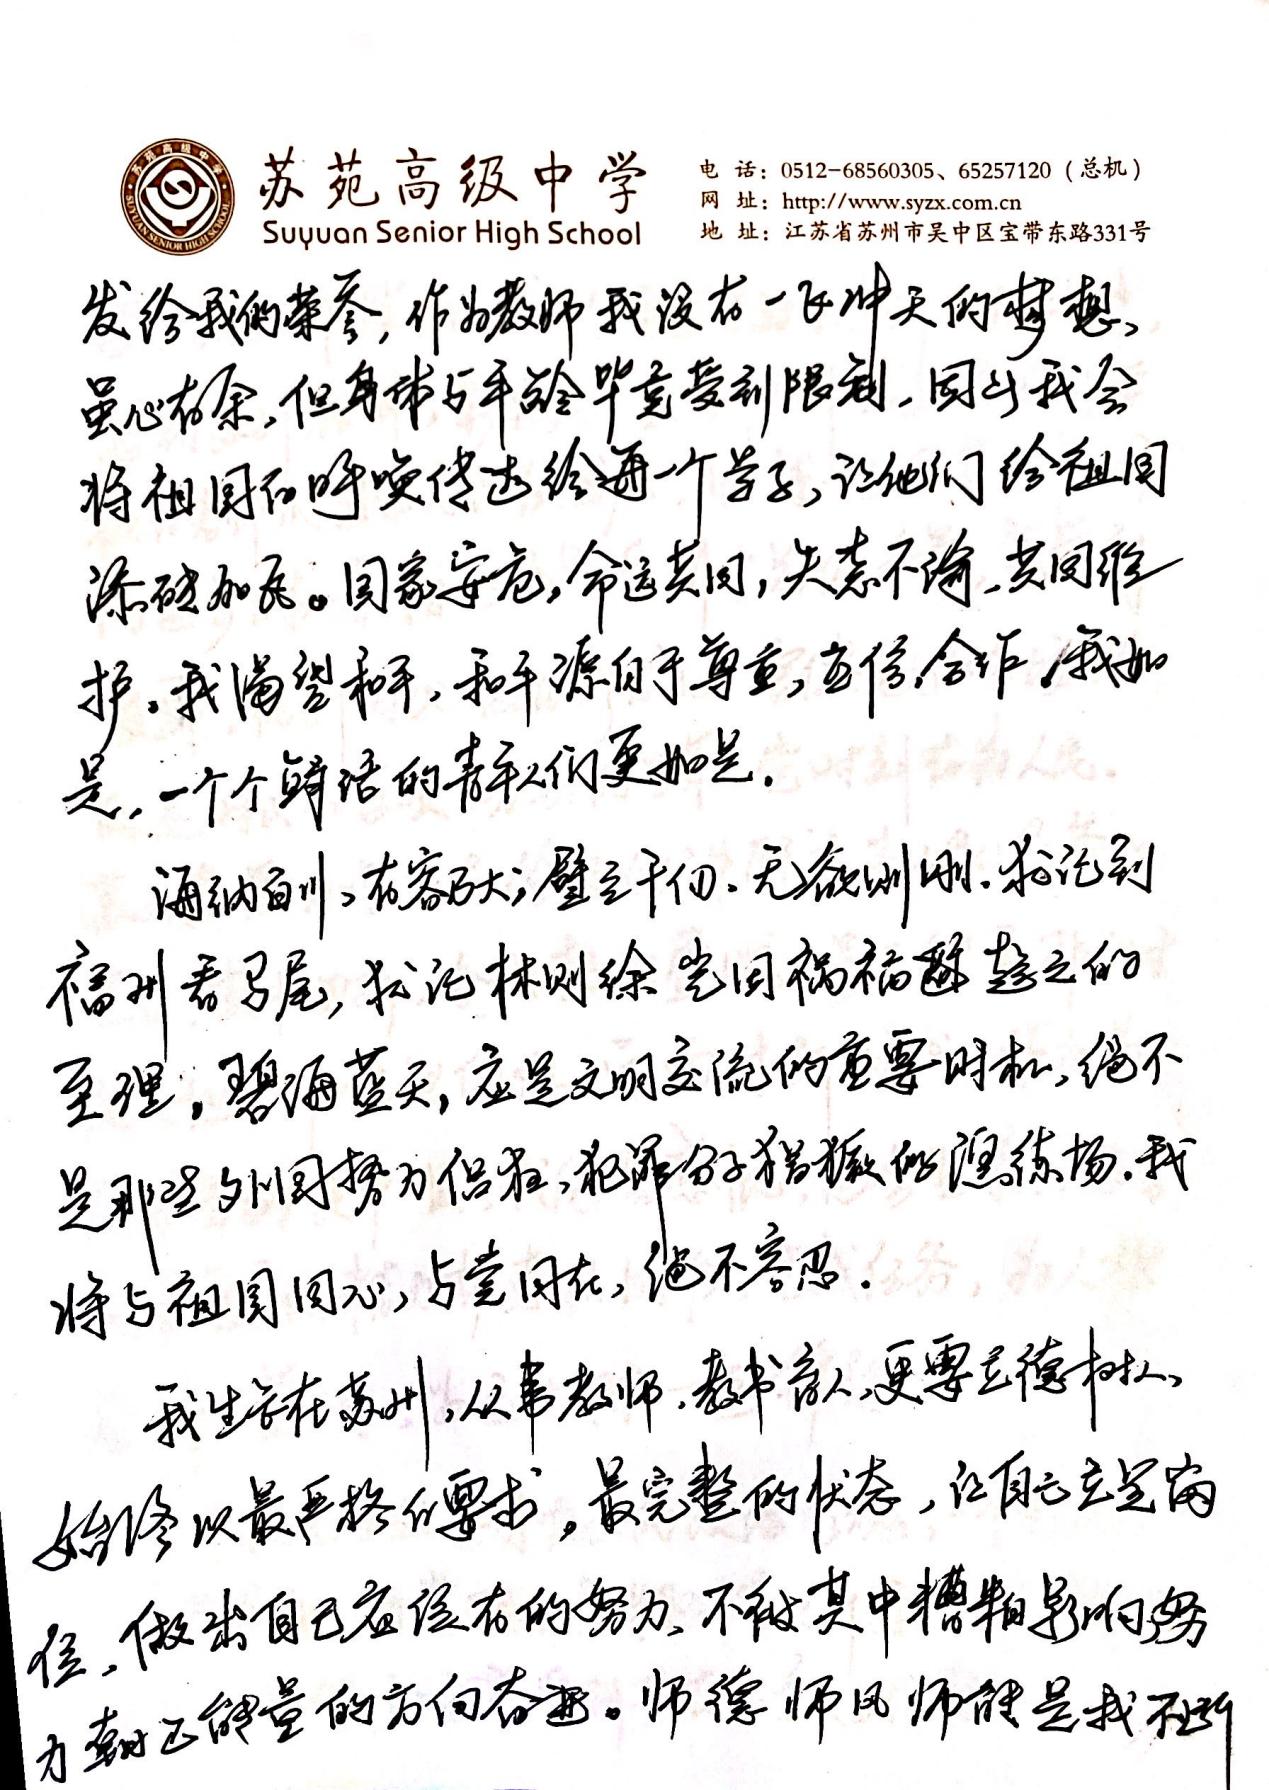 苏苑高级中学
SUYUAN SENIOR HIGH SCHOOL
苏苑高级中学
Suyuan Senior High School
电 话：0512-68560305、65257120（总机）
网 址：http://www.syzx.com.cn
地 址：江苏省苏州市吴中区宝带东路331号
发给我的荣誉，作为教师我没有一飞冲天的梦想、
虽心有余，但身体与年龄毕竟受到限制，因此我会
将祖国的呼唤传达给每一个学子，让他们给祖国
添砖加瓦。国家安危，命运共同，矢志不渝、共同维
护。我渴望和平，和平源自于尊重，互信，合作，我如
是，一个个鲜活的青年人们更如是．
海纳百川、有容乃大；壁立千仞、无欲则刚．犹记到
福州看马尾，犹记林则徐 因祸福 趋之的
至理，碧海蓝天，应是文明交流的重要时机，绝不
是那些外国势力猖狂、犯罪分子猖獗的演练场．我
将与祖国同心，与党同在，绝不容忍．
我生在苏州，从事教师．教书育人、更要立德树人、
始终以最严格的要求，最完整的状态，让自己立足岗
位，做出自己应该有的努力、不被其中糟粕影响，努
力朝正能量的方向奋进。师德师风师能是我不断